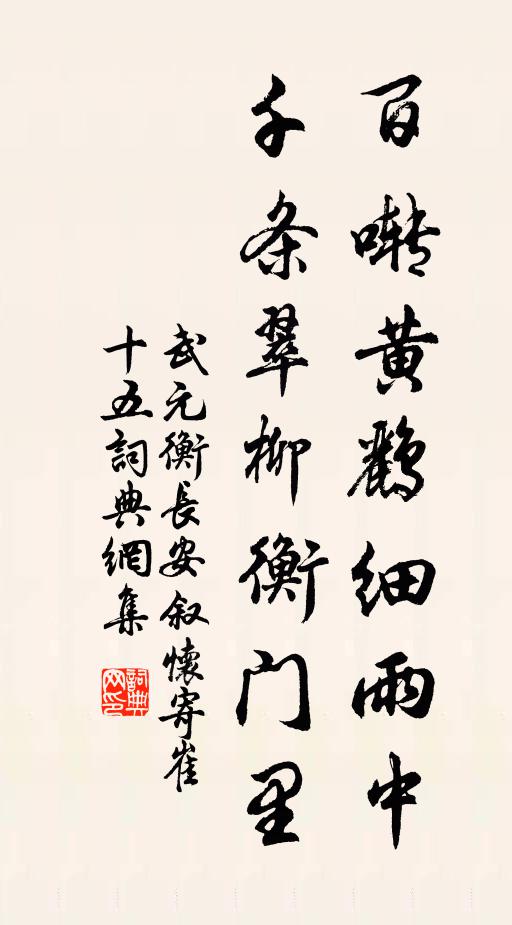 百啭黄鹂细雨中
千条翠柳衡门里
武元衡長安叙懷寄崔
十五詞典網集
詞典网印